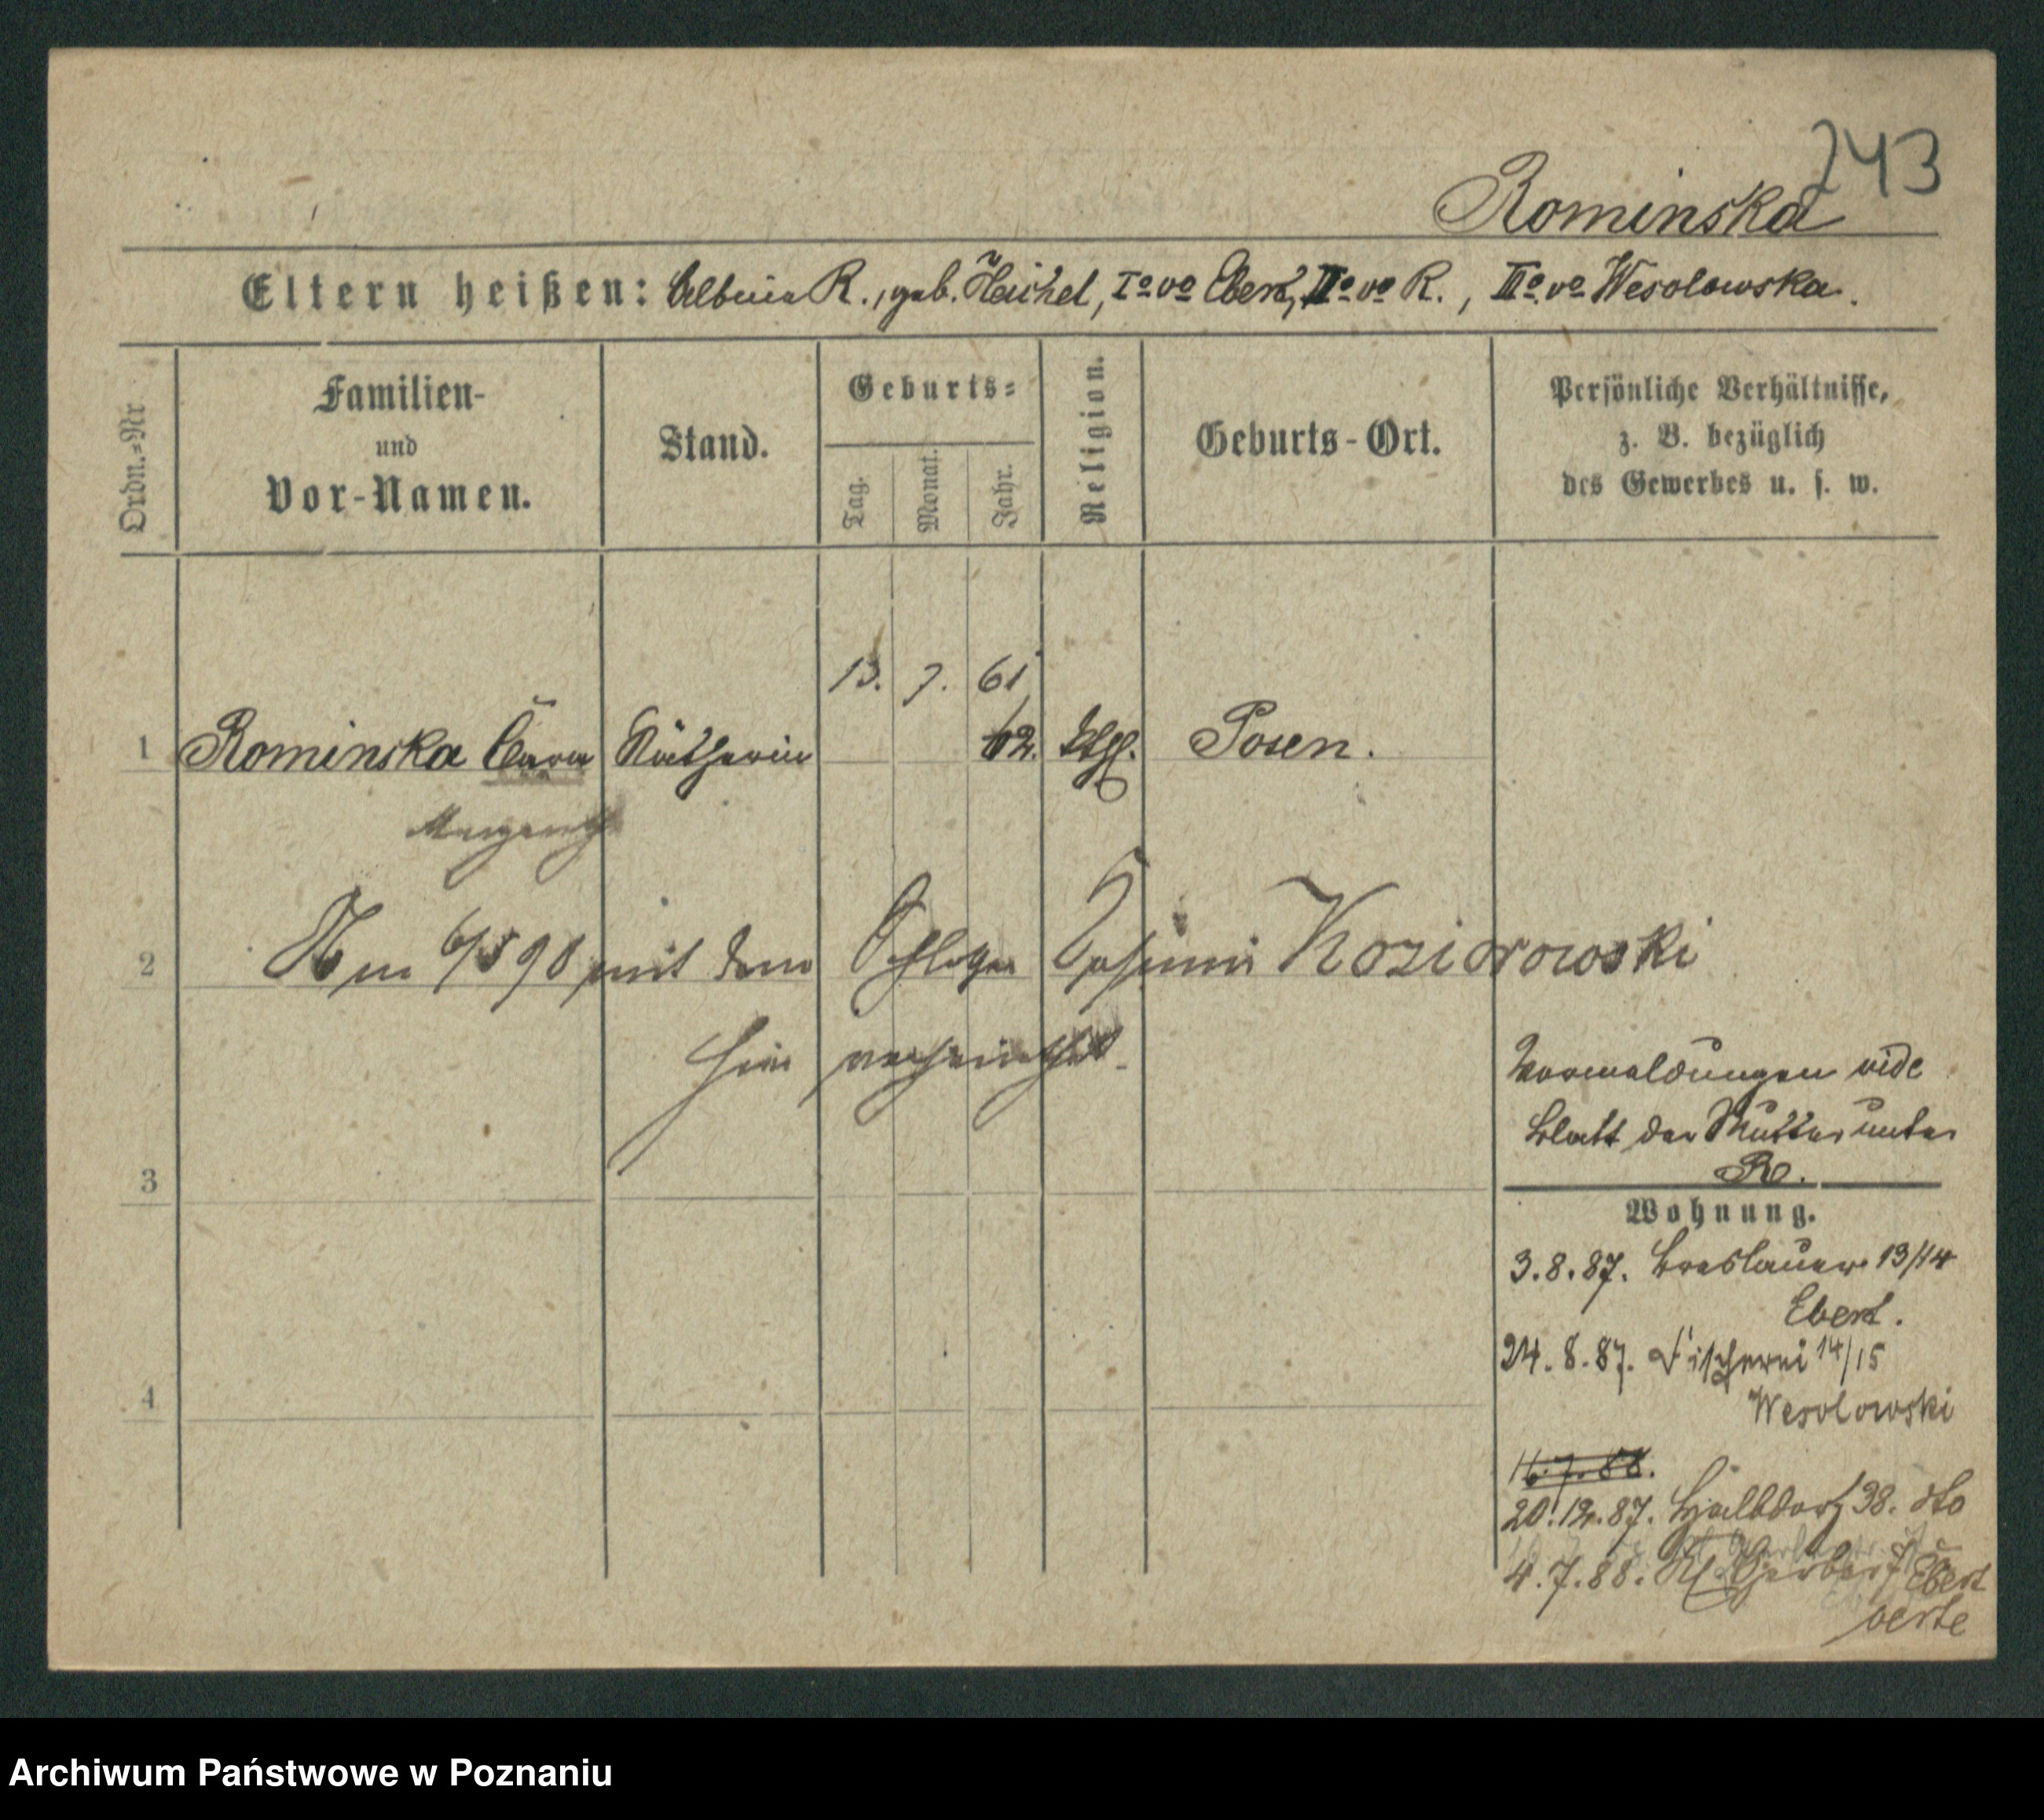 243
Rominska
Eltern heißen: Albina R., geb. Heichel, Io vo Ebert, IIo vo R., IIIo vo Wesolowska.
Ordn.-Nr
Familien-
und
Vor-Namen.
Stand.
Geburts-
Tag.
Monat.
Jahr.
Religion.
Geburts-Ort.
Persönliche Verhältnisse,
z. B. bezüglich
des Gewerbes u. s. w.
13. 7. 61
1 Rominska Näherin 62. kth. Posen.
2 Am 6/5 90 mit dem Koziorowski
hier verheirathet.
Vormeldungen vide
Blatt der Mutter unter
R.
3
Wohnung.
3.8.87. Breslauer 13/14
Ebert.
24.8.87. Fischerei 14/15
Wesolowski
4
16.7.88.
20.12.87. Halbdorf 38. dto
4.7.88. Kl. Gerber 7 Ebert